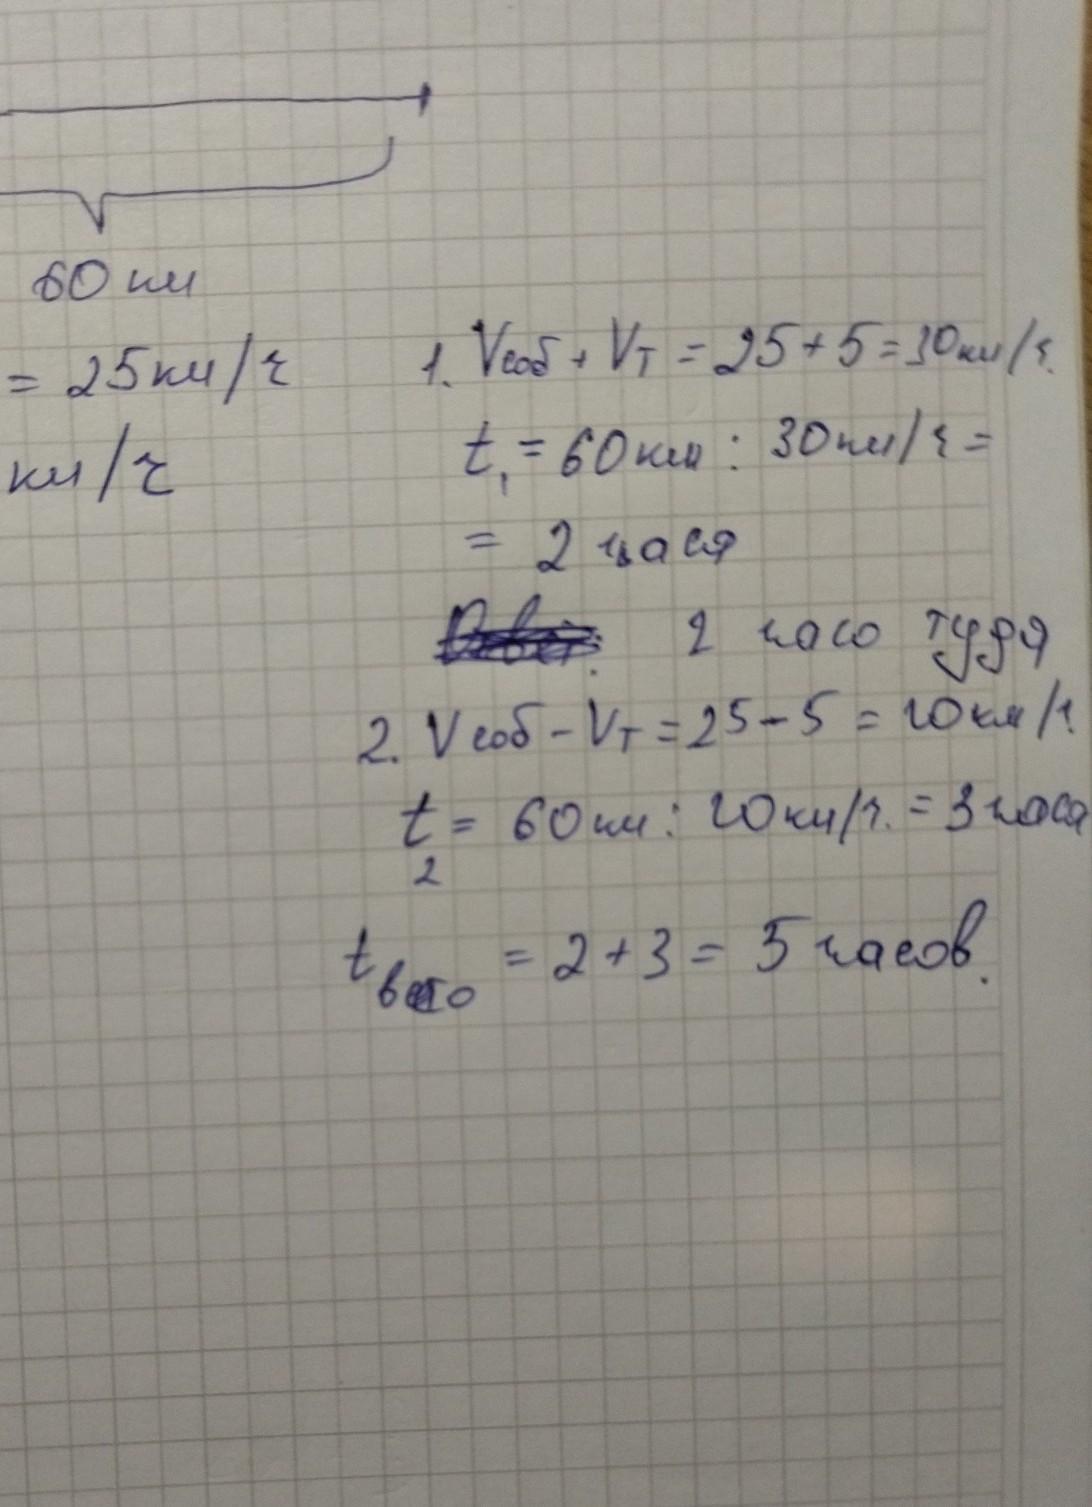 60 км
= 25 км/ч
км/ч
1. Vсоб + Vт = 25 + 5 = 30 км/ч.
t₁ = 60 км : 30 км/ч =
= 2 часа
2 часа туда
2. Vсоб - Vт = 25 - 5 = 20 км/ч.
t₂ = 60 км : 20 км/ч. = 3 часа
t всего = 2 + 3 = 5 часов.